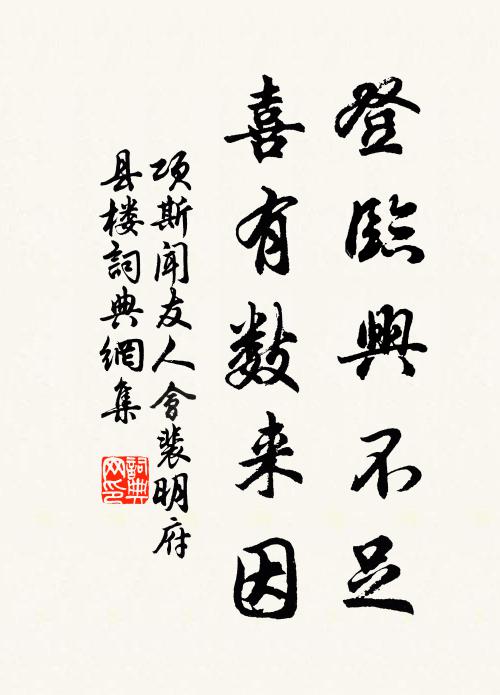 登臨興不足
喜有数来因
項斯聞友人会裴明府
县楼詞典網集
詞典网印